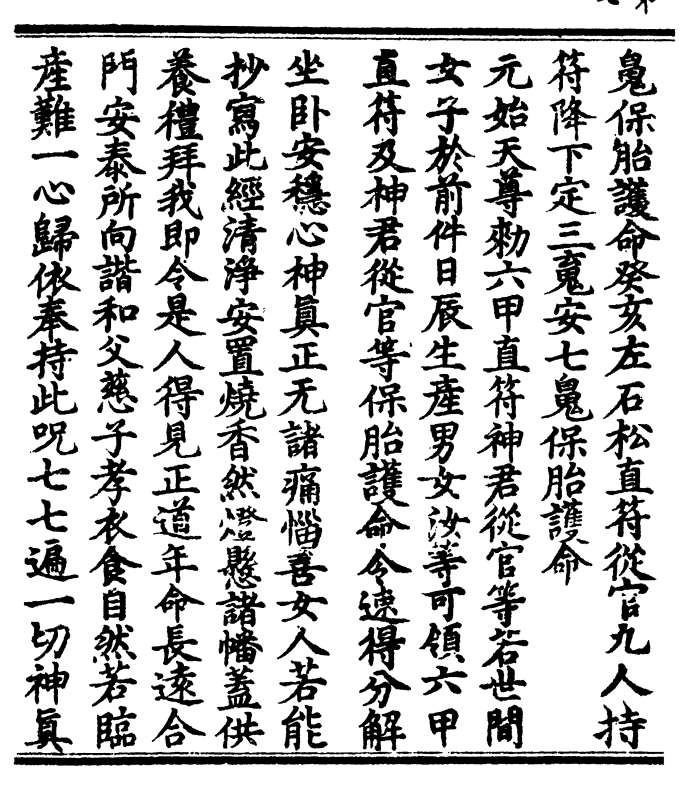 鬼保胎護命癸亥左石松直符從官九人持
符降下定三䰟安七鬼保胎護命
元始天尊勑六甲直符神君從官等若世間
女子於前件日辰生産男女汝等可領六甲
直符及神君從官等保胎護命令速得分解
坐卧安穩心神真正无諸痛惱善女人若能
抄寫此經清淨安置燒香然燈懸諸幡蓋供
養禮拜我即令是人得見正道年命長遠合
門安泰所向諧和父慈子孝衣食自然若臨
産難一心歸依奉持此呪七七遍一切神真